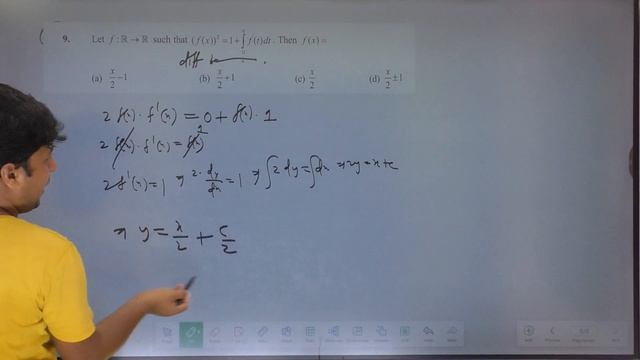 9. Let f : ℝ → ℝ such that (f(x))² = 1 + ∫₀ˣ f(t)dt. Then f(x) =
diff
(a) x/2 − 1 (b) x/2 + 1 (c) x/2 (d) x/2 ± 1
2 f(x) · f'(x) = 0 + f(x) · 1
2 f(x) · f'(x) = f(x)
2 f'(x) = 1 ⇒ 2 · dy/dx = 1 ⇒ ∫ 2 dy = ∫ dx ⇒ 2y = x + c
⇒ y = x/2 + c/2